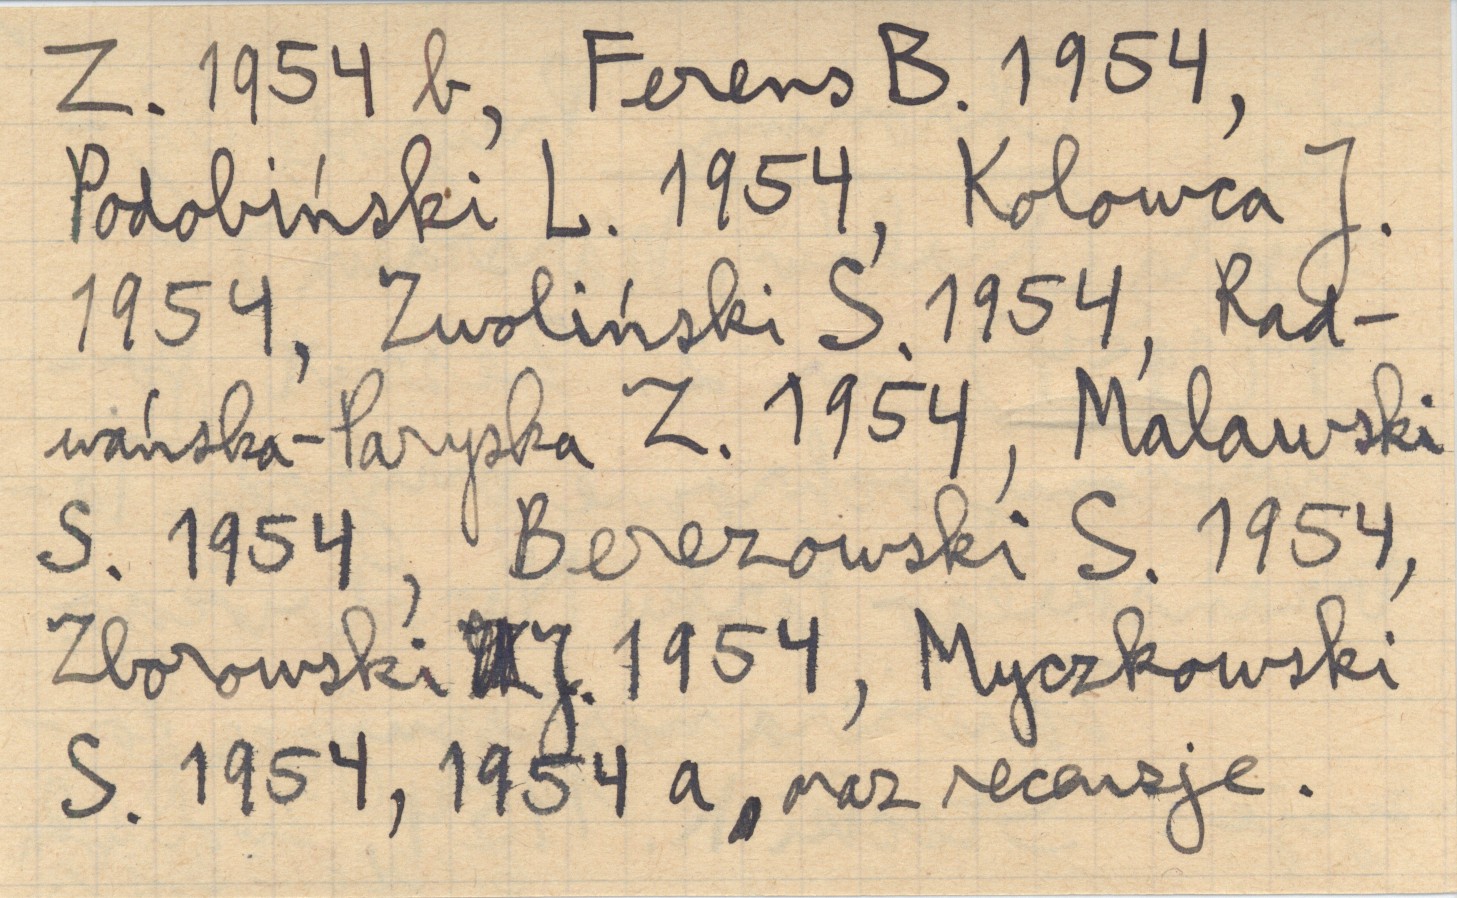 Z. 1954 b, Ferens B. 1954,
Podobiński L. 1954, Kolowca J.
1954, Zwoliński S. 1954, Rad-
wańska-Paryska Z. 1954, Maławski
S. 1954, Berezowski S. 1954,
Zborowski J. 1954, Myczkowski
S. 1954, 1954 a, oraz recenzje.